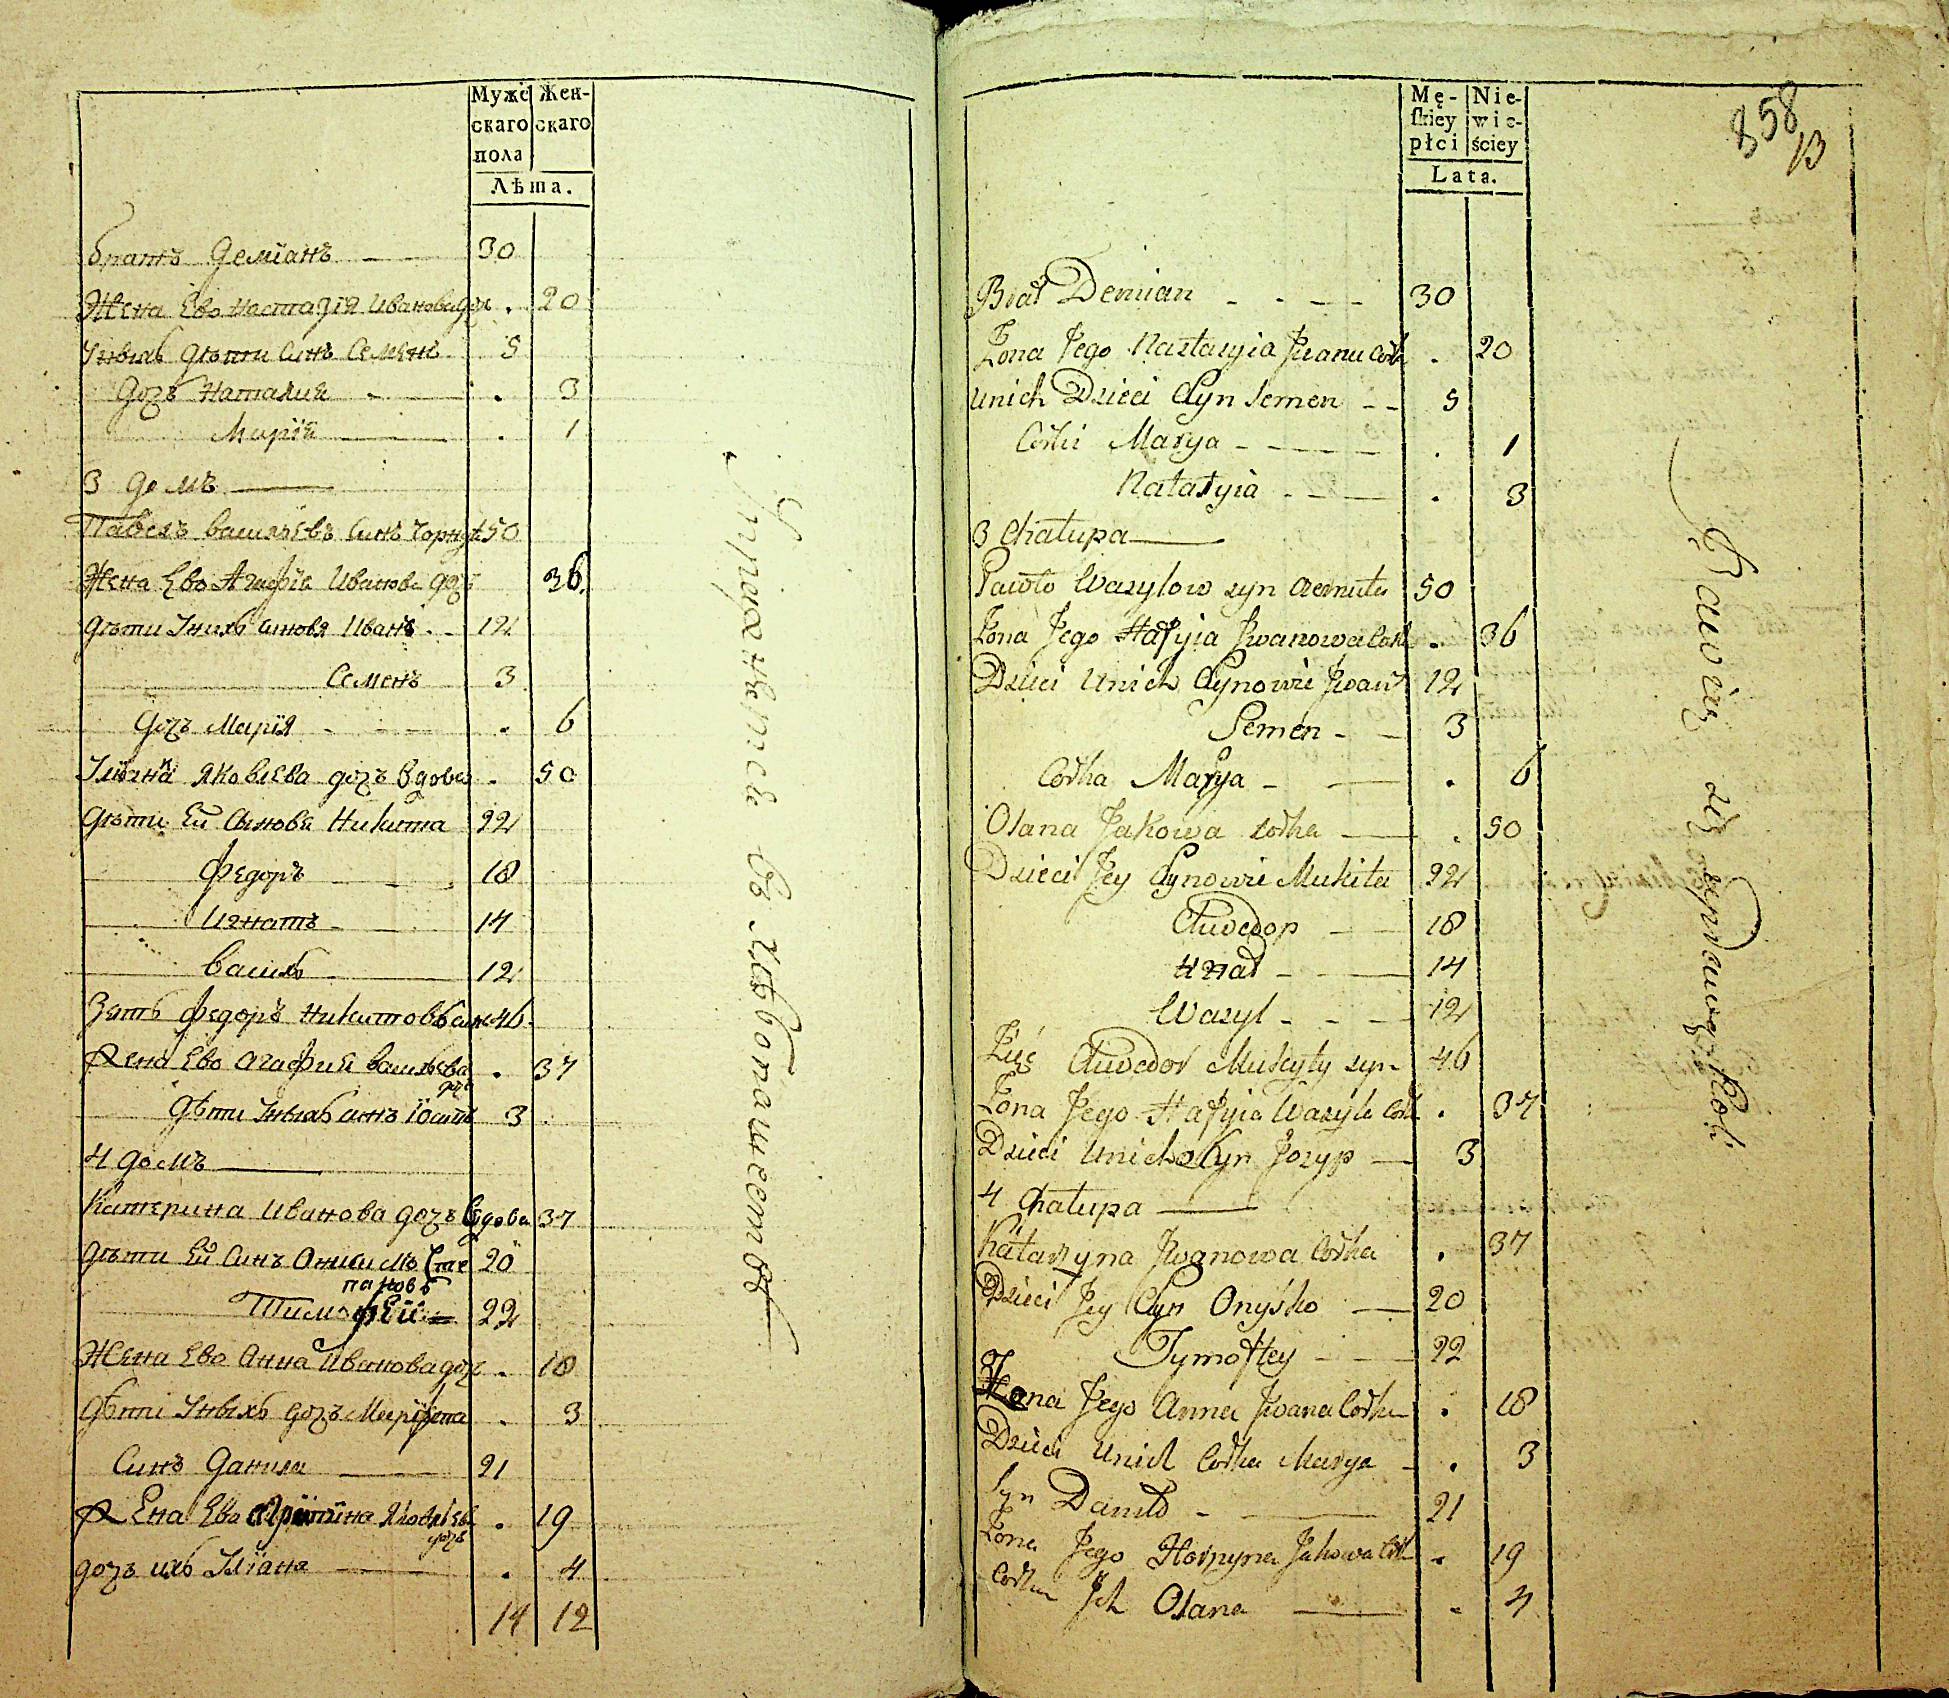 Мужс Жен-
скаго скаго
пола
Лѣта.
братъ Демїанъ — 30
Жена Ево Настазїя Иванова доч . 20
Унихъ дѣти Синъ Семенъ 5
Доч Наталия - . 3
Марїя — . 1
3 домъ —
Павелъ Васильевъ Синъ Чорнут 50
Жена Ево Агафїя Иванова доч 36.
дѣти Унихъ Синовя Иванъ . - 12
Семенъ 3
Доч Марїя - - . 6
Улїяна Яковлева доч Вдова . 50
Дѣти Ей Сыновя Никита 22
Федоръ — 18
Игнатъ - 14
Василь 12
Зять Федоръ Никитовъ Син 46.
Жена Ево Агафия Васильева . 37
доч
Дѣти Унихъ Синъ Юсипъ 3
4 домъ —
Катерина Иванова доч Вдова 37
Дѣти Ей Синъ Онисимъ Сте 20
пановъ
Тимофѣй = 22
Жена Ево Анна Иванова доч . 18
Дѣти Унихъ доч Марїя . 3
Синъ Данила — 21
Жена Ево Яковлев . 19
доч
доч ихъ Улїана — . 4
14 12
Mę- Nie-
skiey wie-
płci ściey
Lata.
858
13
Brat Demian - - - - 30
Żona Jego Nastasyia Jwanu Corka . 20
unich Dzieci Syn Semen - - 5
Corki Marya - - - - - . 1
Natalyia - - - . 3
3 Chałupa —
Pawło Wasylow syn Czernuta 50
Żona Jego Hafyia Jwanowa Corka . 36
Dzieci Unich Synowie Jwan 12
Semen - - 3
Corka Marya - — . 6
Olana Jakowa corka — . 50
Dzieci Jey Synowie Mikita 22
Chwedor — 18
Hnat - - — 14
Wasyl - - - — 12
Zięć Chwedor Mikyty syn 46
Żona Jego Hafyia Wasyla Cork . 37
Dzieci Unich Syn Jozyp — 3
4 Chałupa —
Katarzyna Jwanowa Corka . 37
Dzieci Jey Syn Onyśko — 20
Tymoftey - — 22
Żona Jego Anna Jwana Corka . 18
Dzieci Unich Corka Marya - . 3
Syn Daniło - — 21
Żona Jego Horpyna Jakowa Cork . 19
Corka Jch Olana — . 4